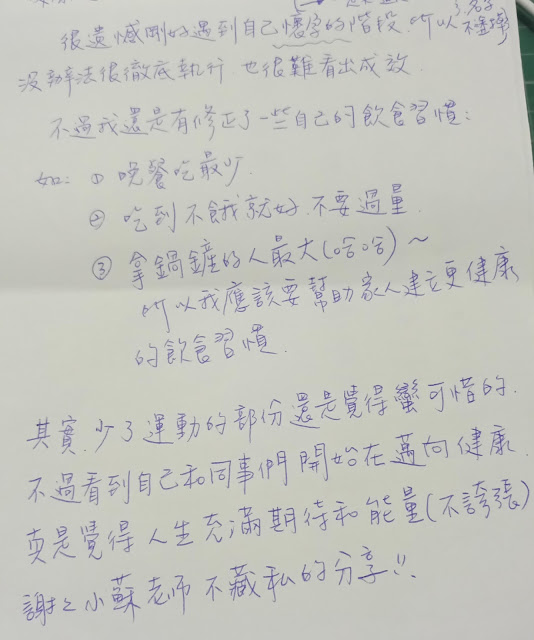 很遺憾剛好遇到自己懷孕的階段.所以
沒辦法很徹底執行.也很難看出成效.
不過我還是有修正了一些自己的飲食習慣:
如: ① 晚餐吃最少.
② 吃到不餓就好.不要過量.
③ 拿鍋鏟的人最大(哈哈)~
所以我應該要幫助家人建立更健康
的飲食習慣.
其實.少了運動的部份還是覺得蠻可惜的.
不過看到自己和同事們開始在邁向健康.
真是覺得人生充滿期待和能量(不誇張)
謝謝小蘇老師不藏私的分享!!